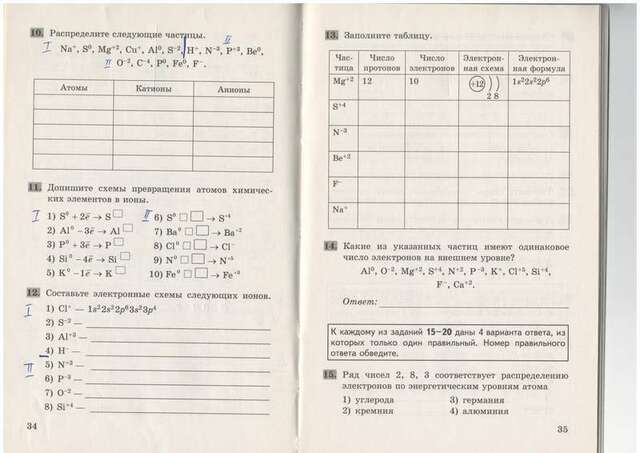 10. Распределите следующие частицы.
I II
Na⁺, S⁰, Mg⁺², Cu⁺, Al⁰, S⁻², H⁺, N⁻³, P⁺³, Be⁰,
II O⁻², C⁻⁴, P⁰, Fe⁰, F⁻.
Атомы Катионы Анионы
11. Допишите схемы превращения атомов химичес-
ких элементов в ионы.
I II
1) S⁰ + 2ē → S□ 6) S⁰ □ □ → S⁺⁴
2) Al⁰ − 3ē → Al□ 7) Ba⁰ □ □ → Ba⁺²
3) P⁰ + 3ē → P□ 8) Cl⁰ □ □ → Cl⁻
4) Si⁰ − 4ē → Si□ 9) N⁰ □ □ → N⁺⁵
5) K⁰ − 1ē → K□ 10) Fe⁰ □ □ → Fe⁺³
12. Составьте электронные схемы следующих ионов.
I 1) Cl⁺ — 1s²2s²2p⁶3s²3p⁴
2) S⁻² —
3) Al⁺³ —
4) H⁻ —
II 5) N⁺³ —
6) P⁻³ —
7) O⁻² —
8) Si⁺⁴ —
34
13. Заполните таблицу.
Час-тица Число протонов Число электронов Электрон-ная схема Электрон-ная формула
Mg⁺² 12 10 +12 ) ) 2 8 1s²2s²2p⁶
S⁺⁴
N⁻³
Be⁺²
F⁻
Na⁺
14. Какие из указанных частиц имеют одинаковое
число электронов на внешнем уровне?
Al⁰, O⁻², Mg⁺², S⁺⁴, N⁺², P⁻³, K⁺, Cl⁺⁵, Si⁺⁴,
F⁻, Ca⁺².
Ответ:
К каждому из заданий 15–20 даны 4 варианта ответа, из
которых только один правильный. Номер правильного
ответа обведите.
15. Ряд чисел 2, 8, 3 соответствует распределению
электронов по энергетическим уровням атома
1) углерода 3) германия
2) кремния 4) алюминия
35